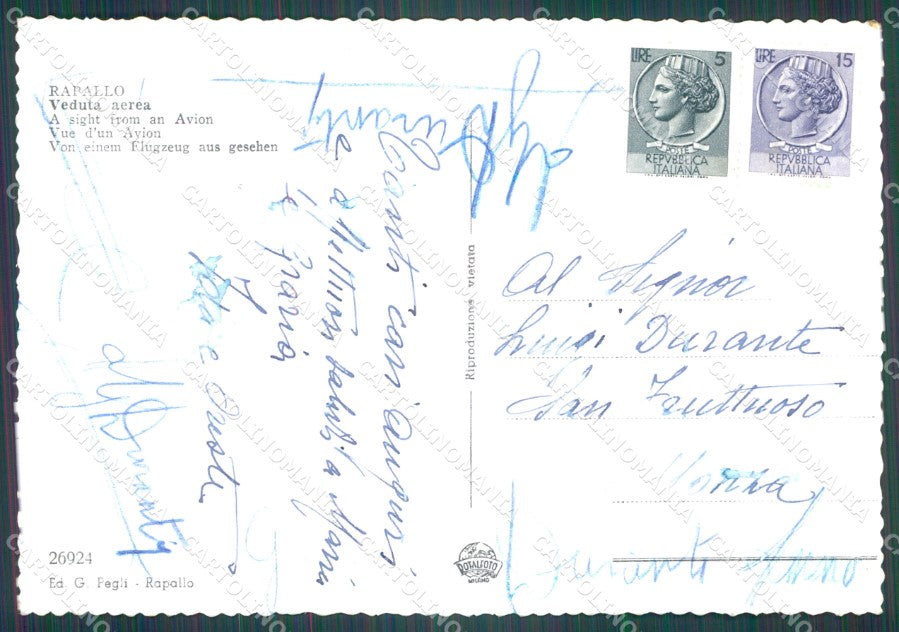 RAPALLO
Veduta aerea
A sight from an Avion
Vue d'un Avion
Von einem Flugzeug aus gesehen
LIRE 5
POSTE
REPVBBLICA
ITALIANA
LIRE 15
POSTE
REPVBBLICA
ITALIANA
Tanti cari auguri
e affettuosi saluti a Maria
e Grazia
Al Signor
Luigi Durante
San Fruttuoso
Monza
Durante
Durante
Riproduzione vietata
26924
Ed. G. Pegli - Rapallo
ROTALFOTO
MILANO
CARTOLINOMANIA